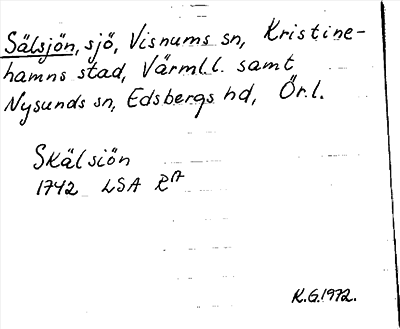 Sälsjön, sjö, Visnums sn, Kristine-
hamns stad, Värml.l. samt
Nysunds sn, Edsbergs hd, Ör.l.
Skälsiön
1742 LSA R17
K.G.1972.